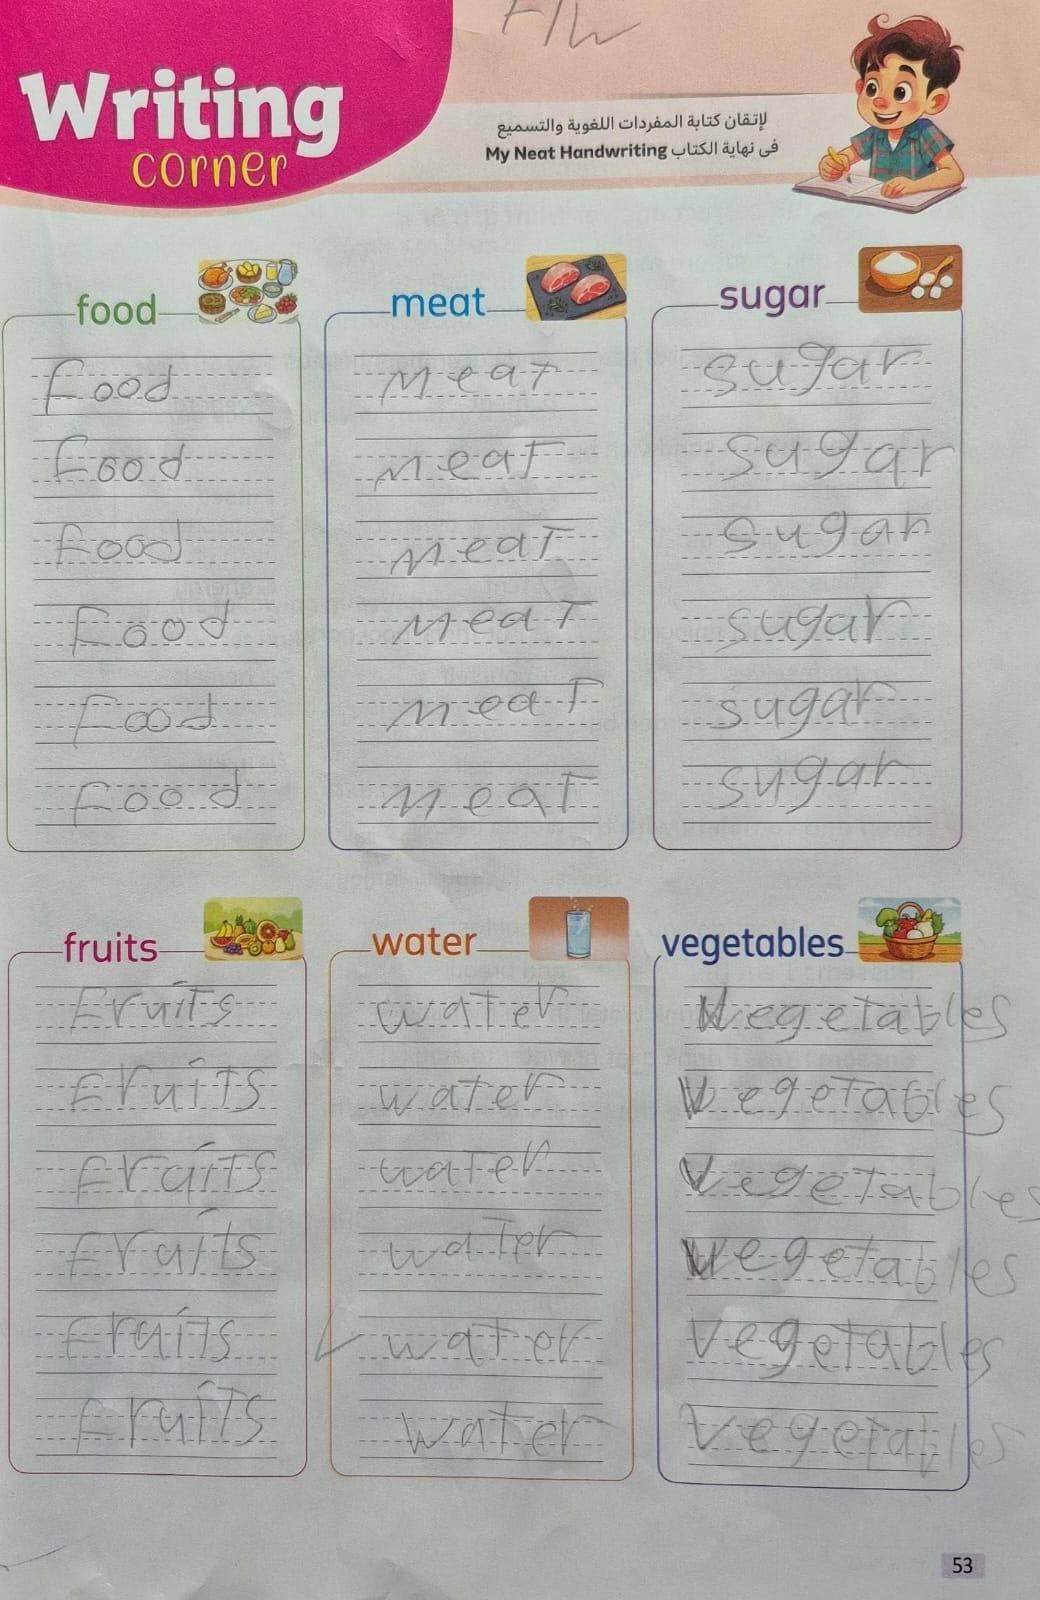 H/W
Writing
corner
لإتقان كتابة المفردات اللغوية والتسميع
فى نهاية الكتاب My Neat Handwriting
food
food
food
food
food
food
food
meat
meat
meat
meat
meat
meat
meat
sugar
sugar
sugar
sugar
sugar
sugar
sugar
fruits
fruits
fruits
fruits
fruits
fruits
fruits
water
water
water
water
water
water
water
vegetables
vegetables
vegetables
vegetables
vegetables
vegetables
vegetables
53